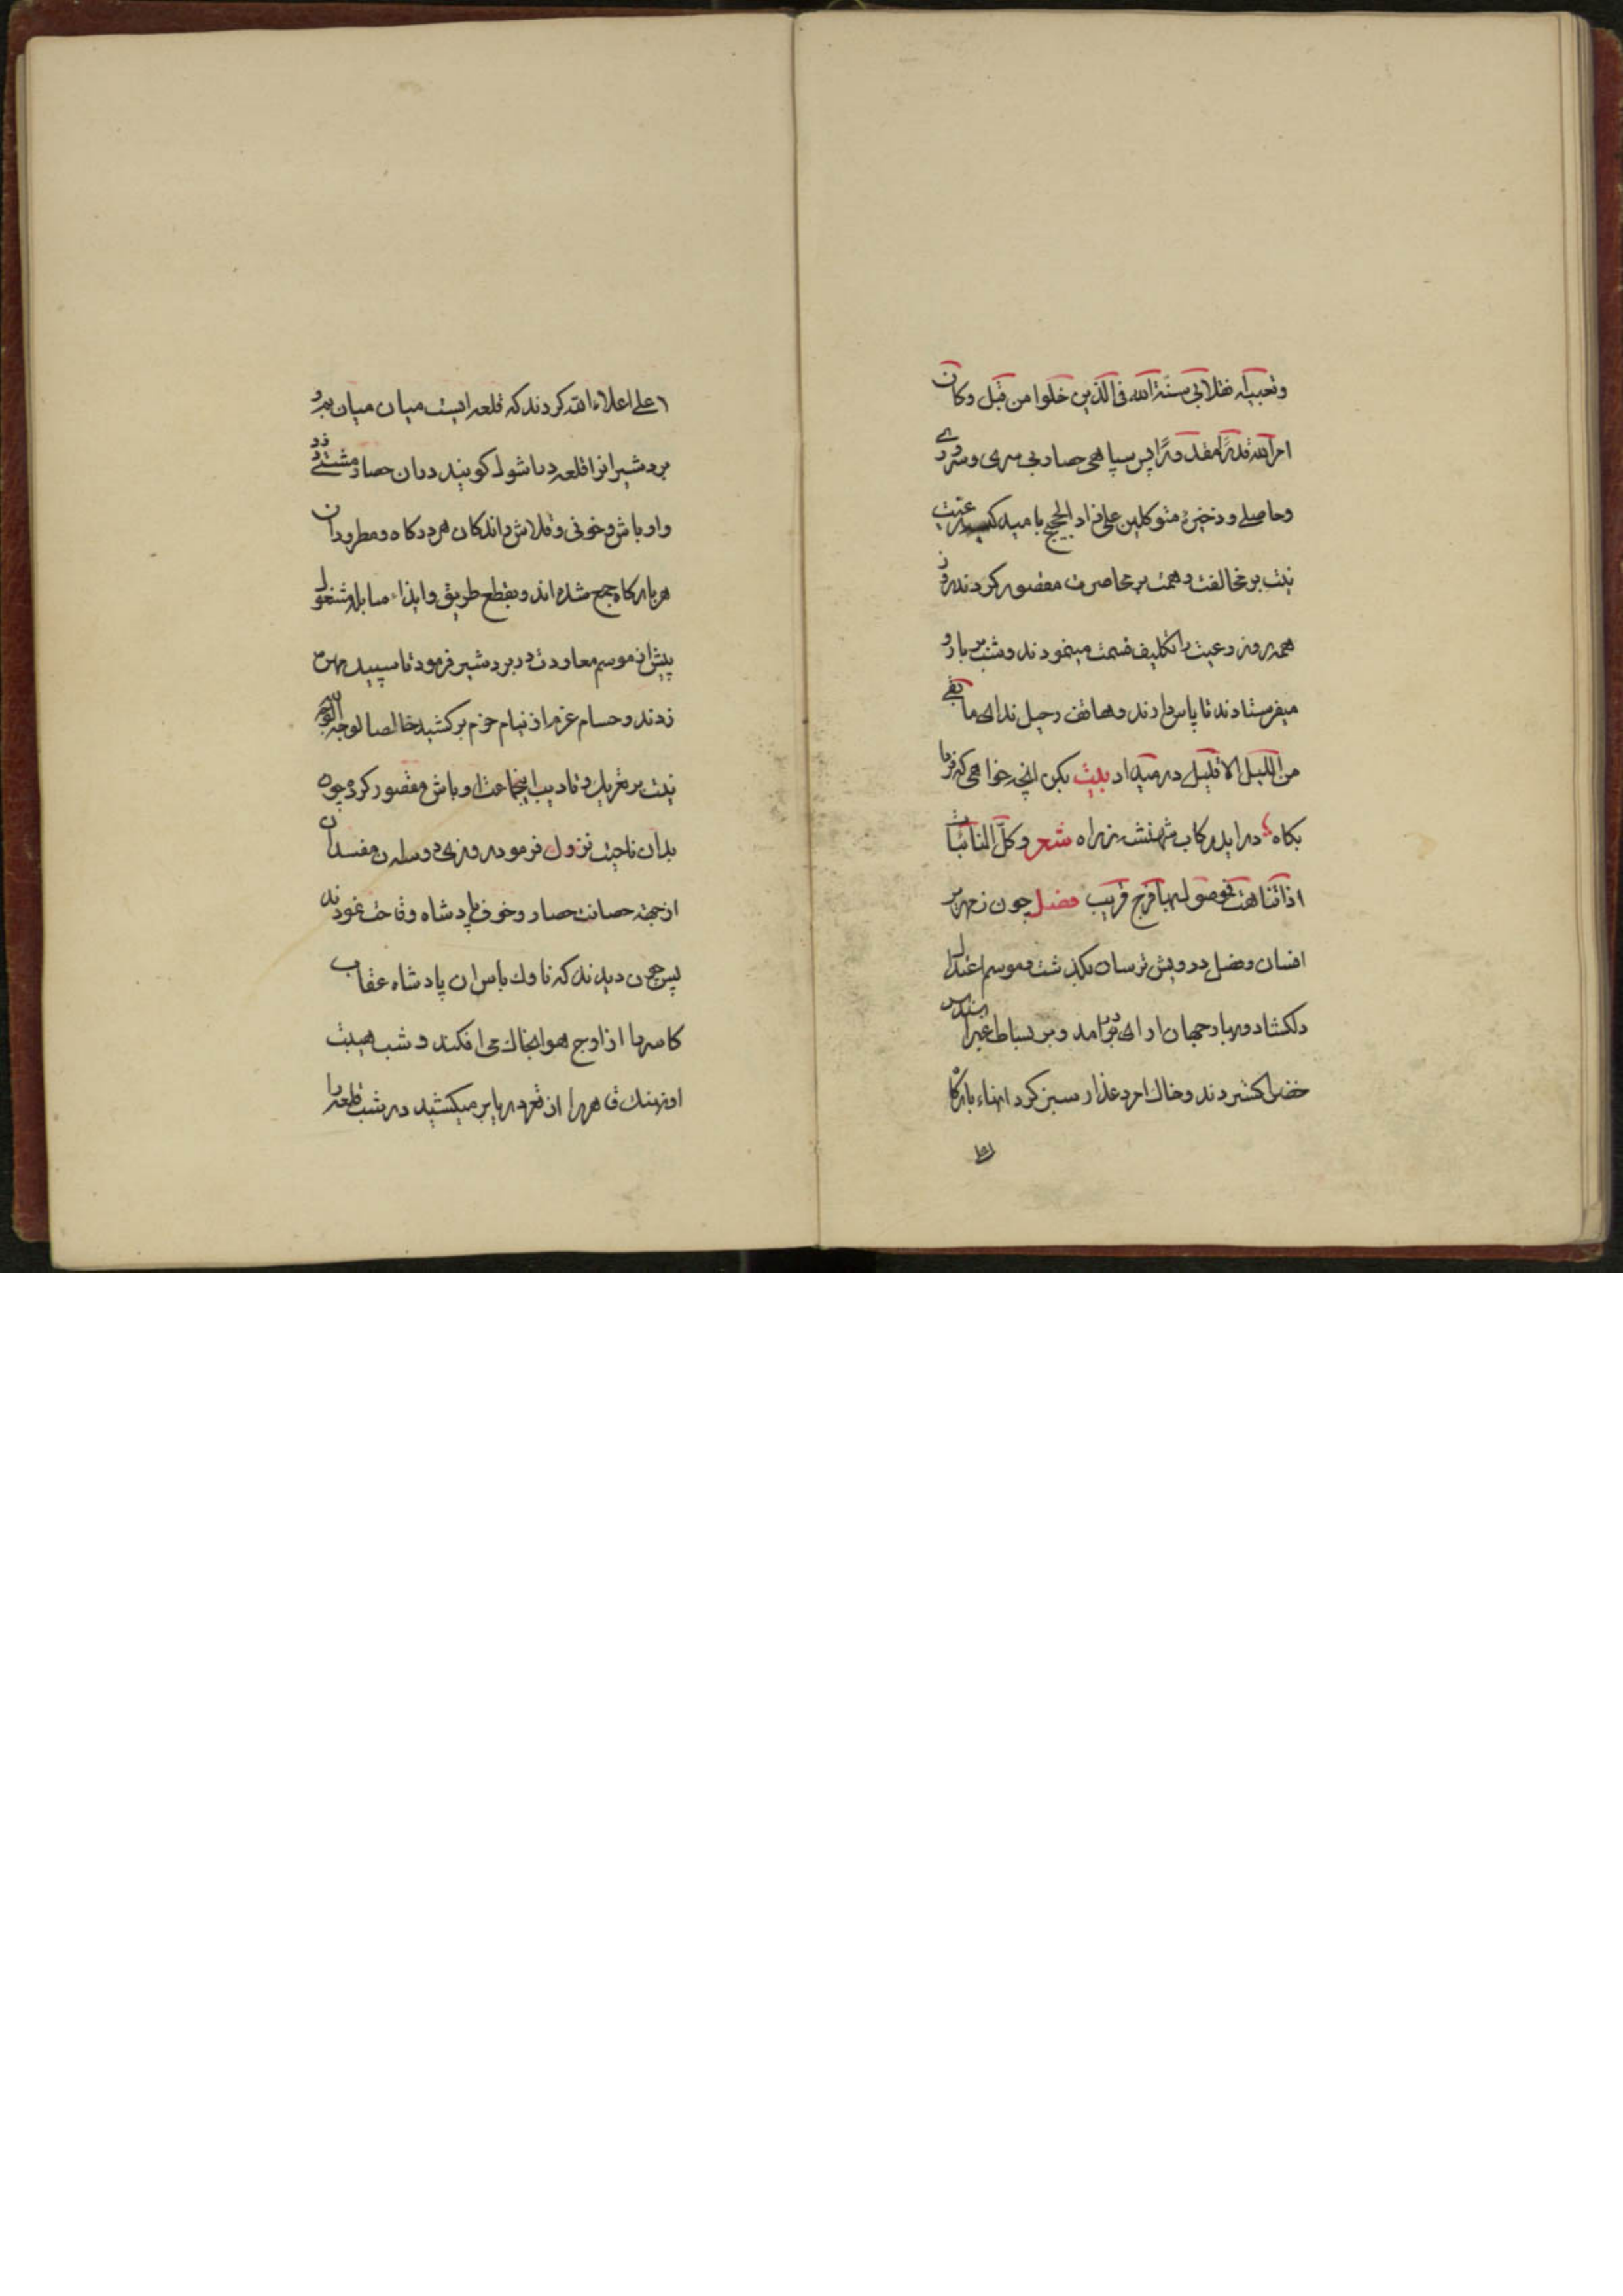 وتعبیه نقلابی سنة الله فی الذین خلوا من قبل وکان
امر الله قدرًا مقدورًا پس سپاهی حصاد بی سری وسروری
وحاصلی وذخیرهٔ متوکلین علی زاد الحجیج بامید
نیت بر مخالفت وهمت بر محاصرت مقصور کردند روز
همه روز رعیت را تکلیف قسمت مینمودند وشب بر بارو
میفرستادند تا پاس دارند وهاتف رحیل ندای ما بقی
من اللیل الا قلیل در میداد بیت بکن انچه خواهی که فرما
بکاه درآید رکاب شهنشه ز راه شعر وکل النائبات
اذا تناهت فموصول بها فرج قریب فصل چون زمهریر
افسان وفصل درویش ترسان بکذشت وموسم اعتدال
دلکشاد وبهار جهان ارای درآمد وبر بساط غبرا سندس
خضرا کستردند وخاک امرد عذار سبز کرد انهاء بارکاه
اعلی اعلاه الله کردند که قلعه ایست میان میان
بردشیر انرا قلعه شول کویند دران حصار مشتی دزد
واوباش وخونی وقلاش راندکان هر درکاه ومطرودان
هر بارکاه جمع شده اند وبقطع طریق وایذاء سابله مشغول
پیش از موسم معاودت در بردشیر فرمود تا سپیده مهره
زدند وحسام عزم از نیام حزم برکشید خالصا لوجه الله
نیت بر تعریک وتادیب اینجماعت اوباش مقصور کرد چون
بدان ناحیت نزول فرمود روزی دو سه ان مفسدان
از جهة حصانت حصار وخوف پادشاه وقاحت نمودند
پس چون دیدند که ناوک باس ان پادشاه عقاب
کاسر را از اوج هوا بخاک می افکند وشست هیبت
او نهنک قاهر را از قعر دریا بر میکشید در شب قلعه را